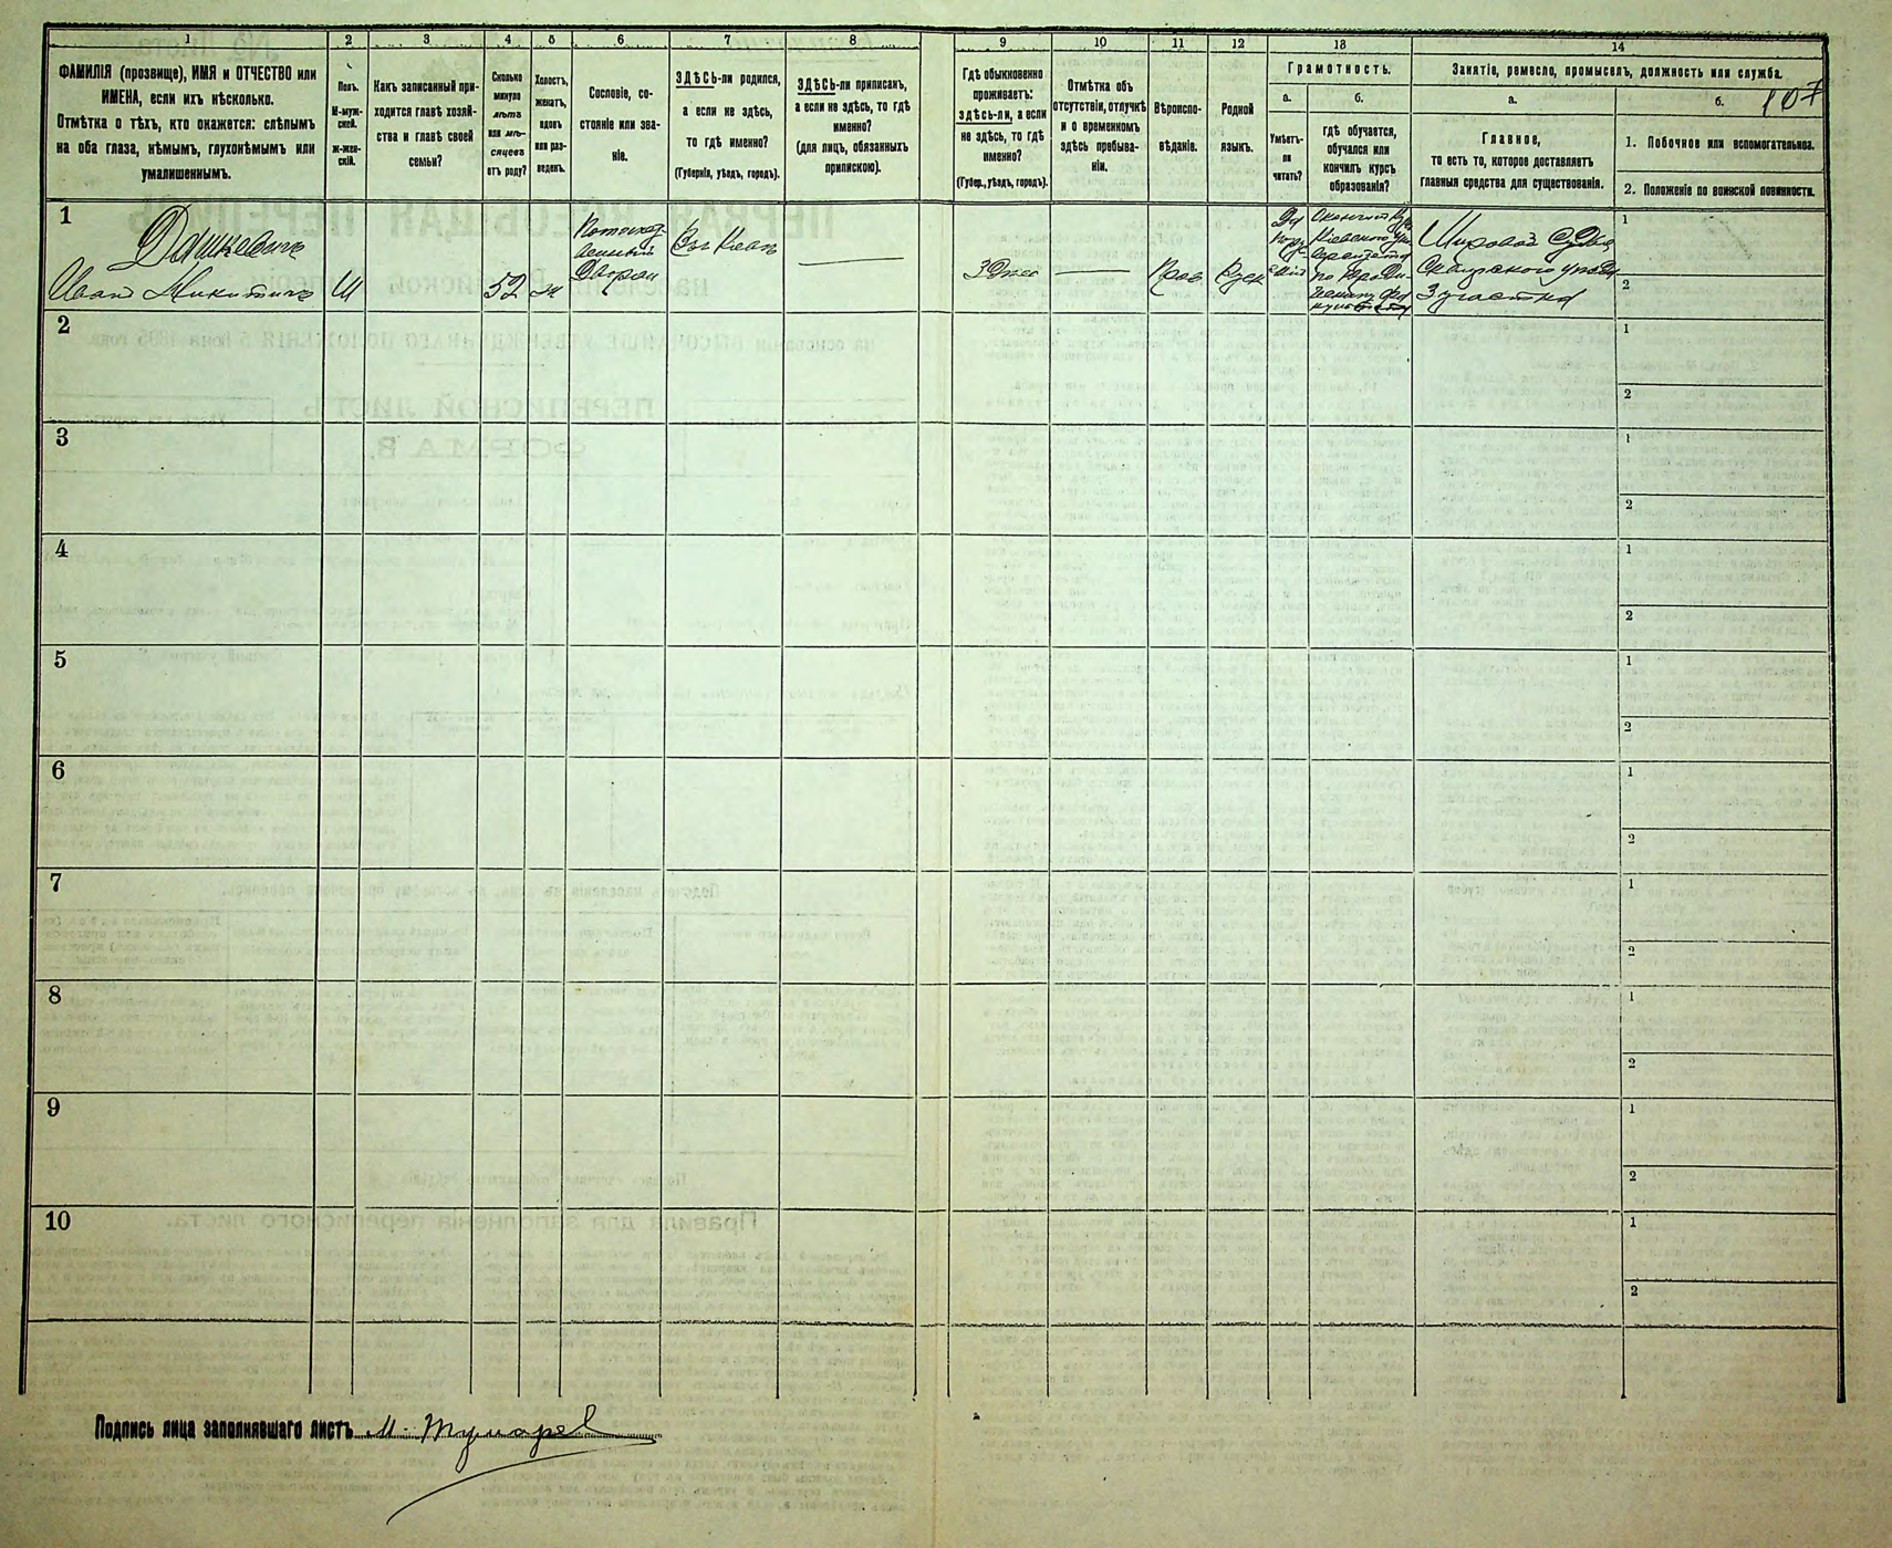 1 2 3 4 5 6 7 8 9 10 11 12 13 14
ФАМИЛІЯ (прозвище), ИМЯ и ОТЧЕСТВО или
ИМЕНА, если ихъ нѣсколько.
Отмѣтка о тѣхъ, кто окажется: слѣпымъ
на оба глаза, нѣмымъ, глухонѣмымъ или
умалишеннымъ.
Полъ.
М-муж-
ской.
ж-жен-
скій.
Какъ записанный при-
ходится главѣ хозяй-
ства и главѣ своей
семьи?
Сколько
минуло
лѣтъ
или мѣ-
сяцевъ
отъ роду?
Холостъ,
женатъ,
вдовъ
или раз-
веденъ.
Сословіе, со-
стояніе или зва-
ніе.
ЗДѢСЬ-ли родился,
а если не здѣсь,
то гдѣ именно?
(Губернія, уѣздъ, городъ).
ЗДѢСЬ-ли приписанъ,
а если не здѣсь, то гдѣ
именно?
(для лицъ, обязанныхъ
припискою).
Гдѣ обыкновенно
проживаетъ:
здѣсь-ли, а если
не здѣсь, то гдѣ
именно?
(Губер., уѣздъ, городъ).
Отмѣтка объ
отсутствіи, отлучкѣ
и о временномъ
здѣсь пребыва-
ніи.
Вѣроиспо-
вѣданіе.
Родной
языкъ.
Грамотность.
а.
Умѣетъ-
ли
читать?
б.
гдѣ обучается,
обучался или
кончилъ курсъ
образованія?
Занятіе, ремесло, промыселъ, должность или служба.
107
а.
Главное,
то есть то, которое доставляетъ
главныя средства для существованія.
б.
1. Побочное или вспомогательное.
2. Положеніе по воинской повинности.
1
Дашкевичъ
Иванъ Никитичъ
М
52
Дворян
Прав
Руск
Да
Кіевскаго
Мировой Судья
Сквирскаго уѣзда
3 участка
1
2
2
1
2
3
1
2
4
1
2
5
1
2
6
1
2
7
1
2
8
1
2
9
1
2
10
1
2
Подпись лица заполнявшаго листъ